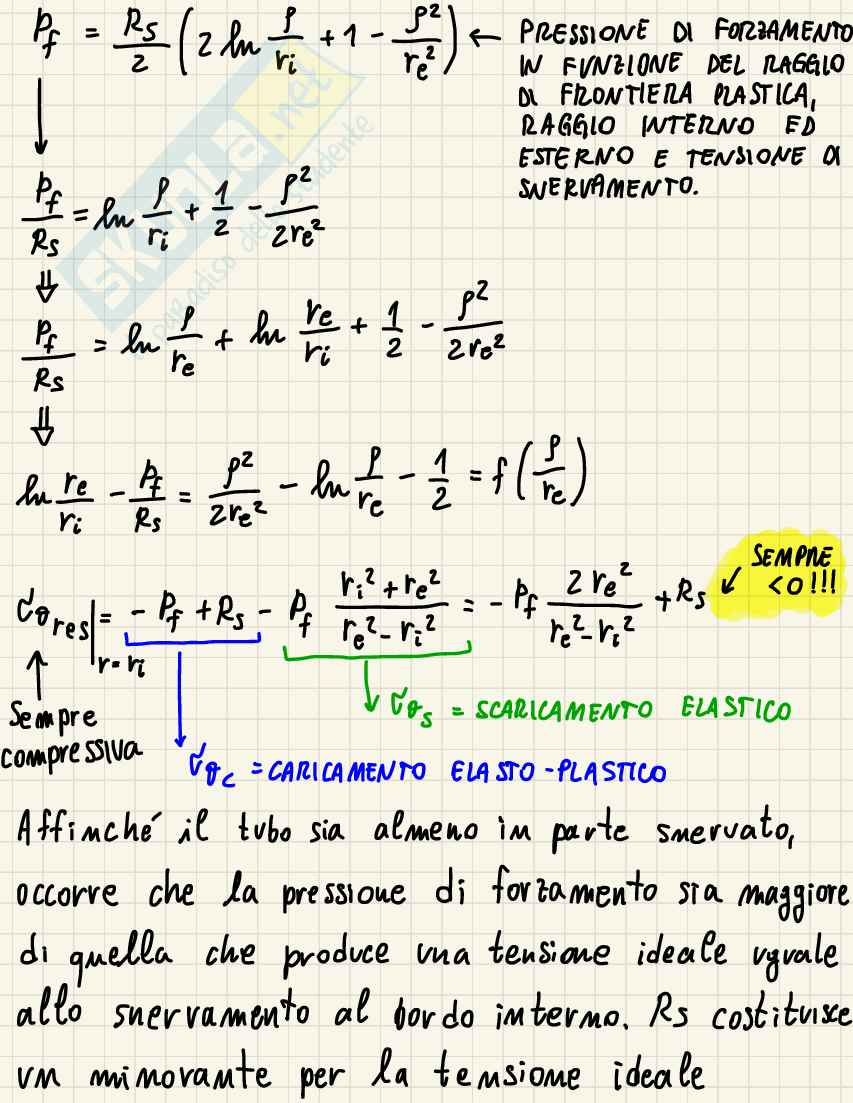 p_f = R_s/2 (2 ln ρ/r_i + 1 - ρ²/r_e²) ← PRESSIONE DI FORZAMENTO
IN FUNZIONE DEL RAGGIO
DI FRONTIERA PLASTICA,
RAGGIO INTERNO ED
ESTERNO E TENSIONE DI
SNERVAMENTO.
↓
p_f/R_s = ln ρ/r_i + 1/2 - ρ²/2r_e²
⇓
p_f/R_s = ln ρ/r_e + ln r_e/r_i + 1/2 - ρ²/2r_e²
⇓
ln r_e/r_i - p_f/R_s = ρ²/2r_e² - ln ρ/r_e - 1/2 = f(ρ/r_e)
SEMPRE
< 0 !!!
σ_θ res|r=r_i = - P_f + R_s - P_f (r_i² + r_e²)/(r_e² - r_i²) = - P_f 2r_e²/(r_e² - r_i²) + R_s ↙
↑
Sempre
compressiva
σ_θs = SCARICAMENTO ELASTICO
σ_θc = CARICAMENTO ELASTO-PLASTICO
Affinché il tubo sia almeno in parte snervato,
occorre che la pressione di forzamento sia maggiore
di quella che produce una tensione ideale uguale
allo snervamento al bordo interno. Rs costituisce
un minorante per la tensione ideale
SKUOLA.net
paradiso dello studente